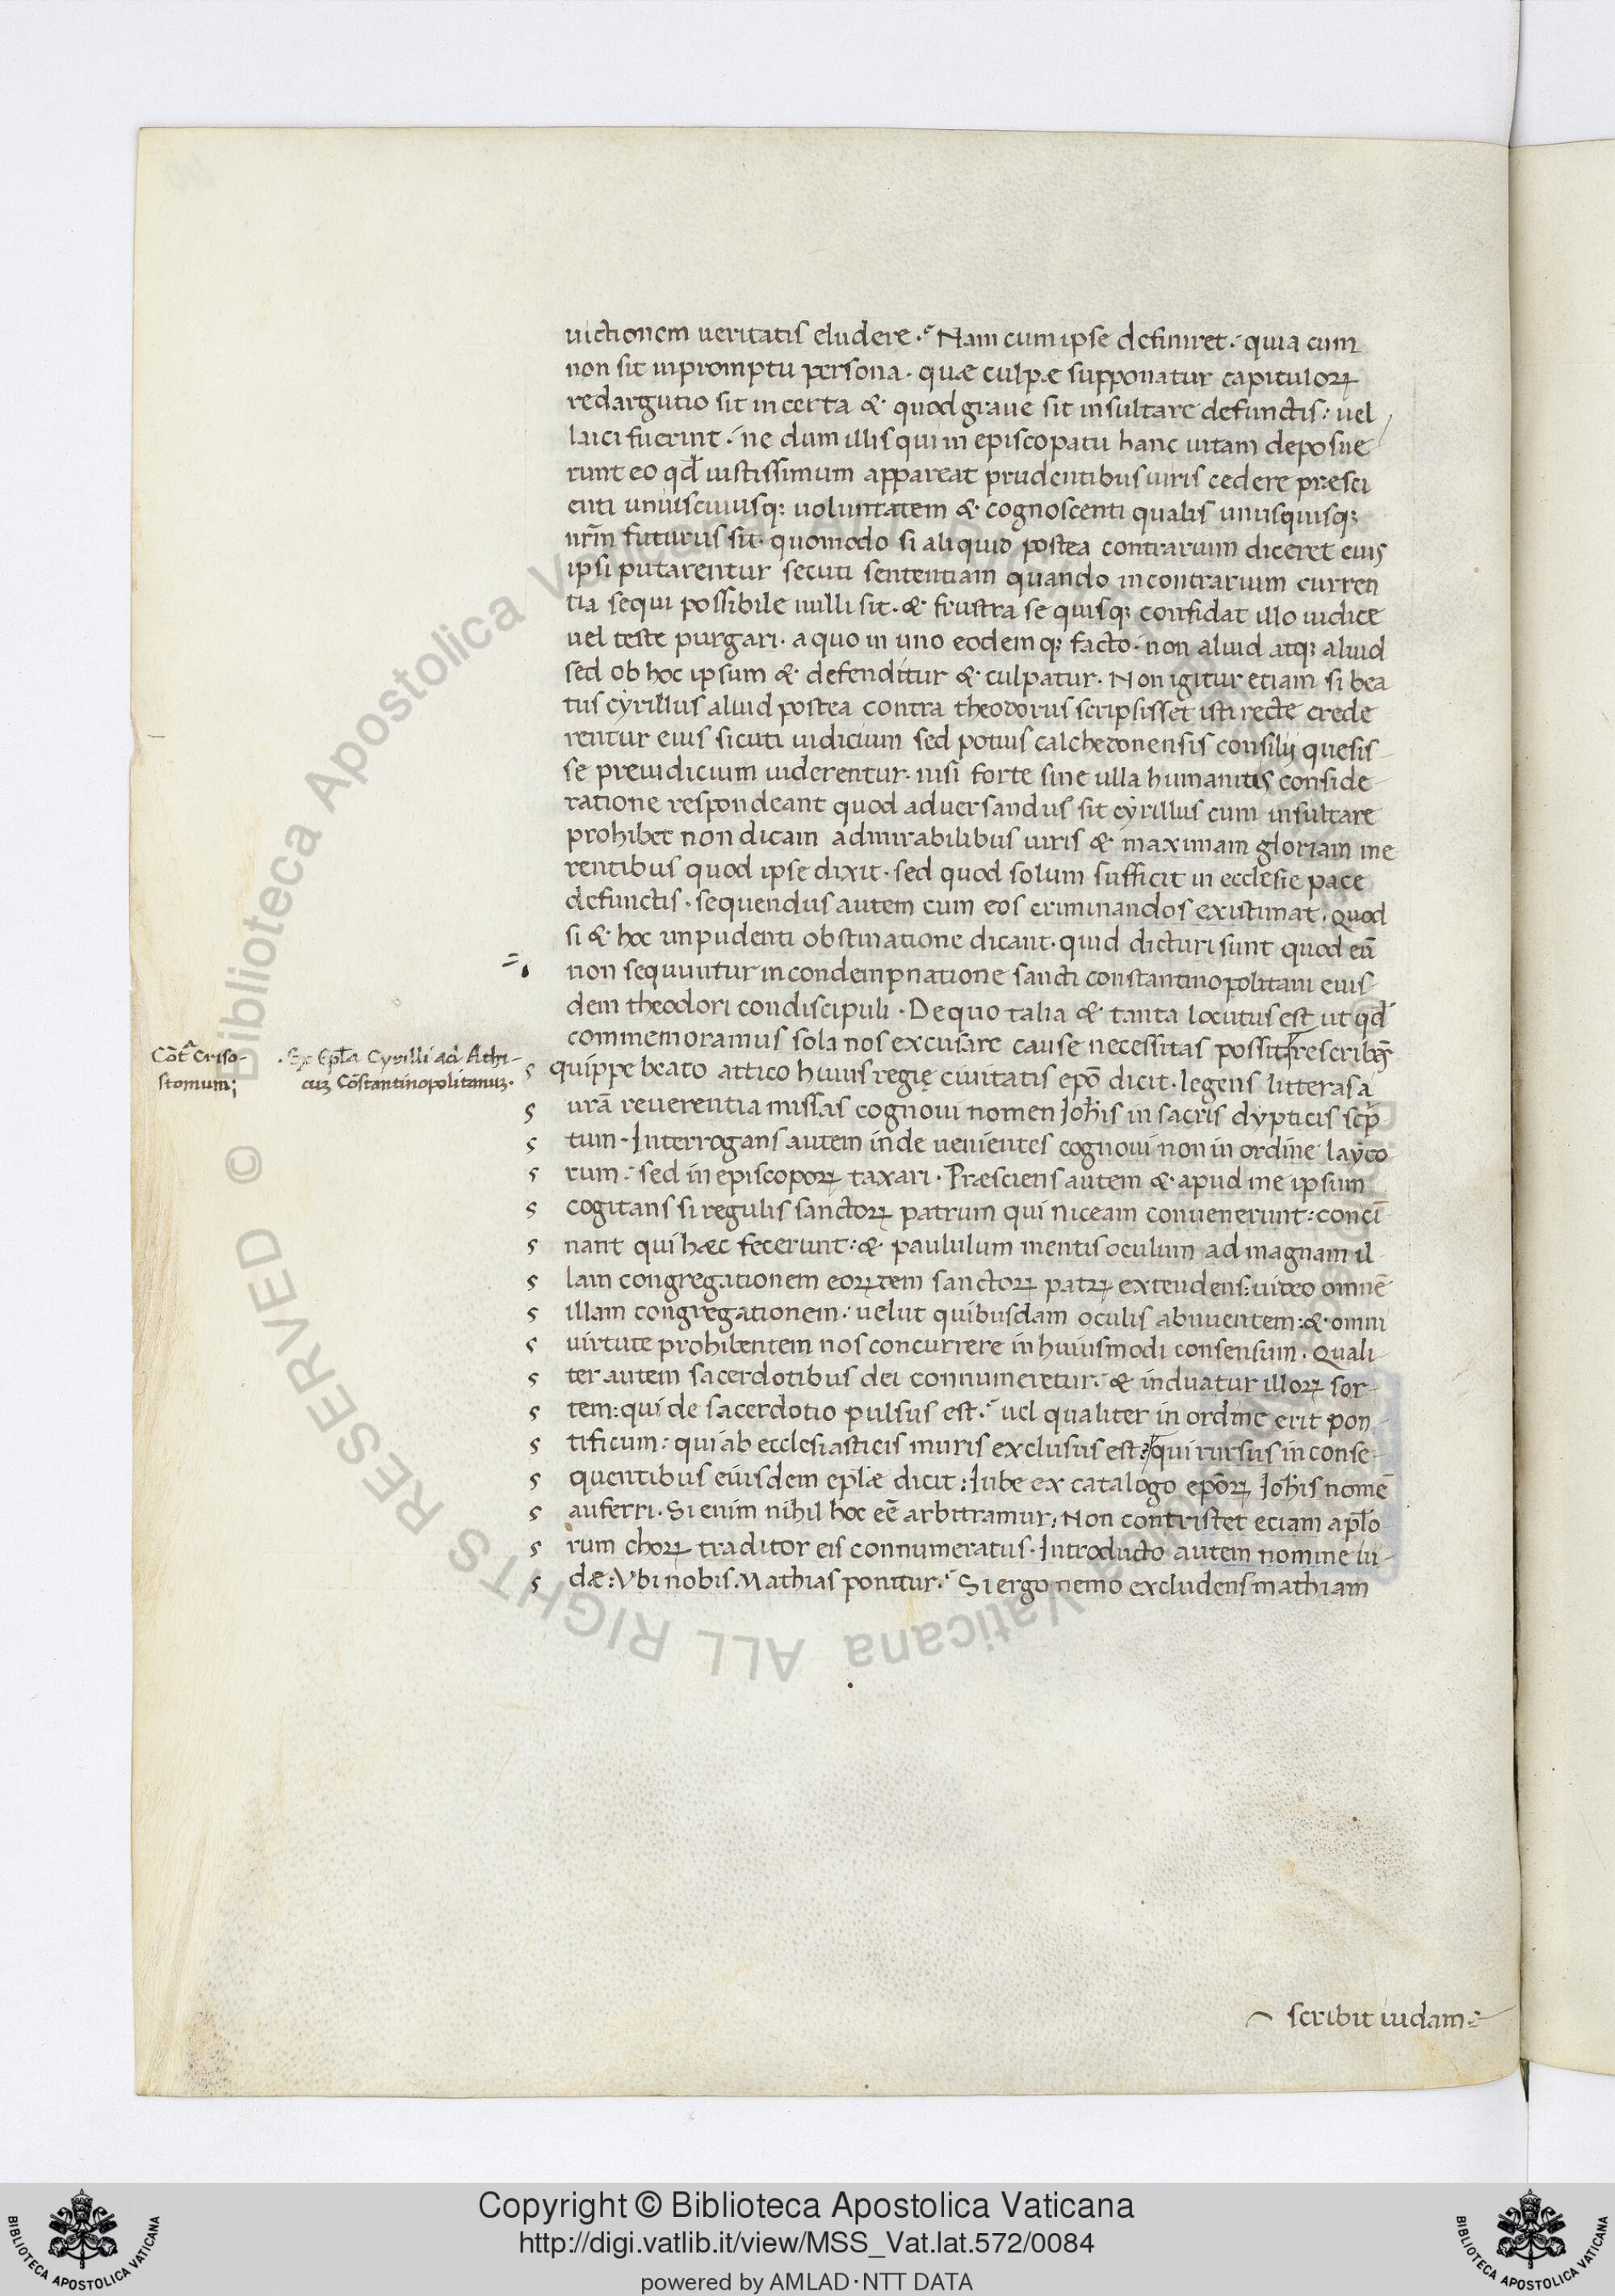 uictionem ueritatis eludere. Nam cum ipse definiret. quia cum
non sit inpromptu persona. quæ culpæ supponatur capitulorꝝ
redargutio sit incerta & quod graue sit insultare defunctis: uel
laici fuerint. ne dum illis qui in episcopatu hanc uitam deposue
runt eo qd̄ iustissimum appareat prudentibus uiris cedere præsci
enti uniuscuiusqꝫ uoluntatem & cognoscenti qualis unusquisqꝫ
nr̄m futurus sit. quomodo si aliquid postea contrarium diceret eius
ipsi putarentur secuti sententiam quando in contrarium curren
tia sequi possibile nulli sit. & frustra se quisqꝫ confidat illo iudice
uel teste purgari. a quo in uno eodemqꝫ facto. non aliud atqꝫ aliud
sed ob hoc ipsum & defenditur & culpatur. Non igitur etiam si bea
tus cyrillus aliud postea contra theodorus scripsisset isti recte crede
rentur eius sicuti iudicium sed potius calchedonensis consilij quesis-
se preiudicium uiderentur. nisi forte sine ulla humanitis conside-
ratione respondeant quod aduersandus sit cyrillus cum insultare
prohibet non dicam admirabilibus uiris & maximam gloriam me
rentibus quod ipse dixit. sed quod solum sufficit in ecclesie pace
defunctis. sequendus autem cum eos criminandos existimat. Quod
si & hoc inpudenti obstinatione dicant. quid dicturi sunt quod eū
non sequuntur in condempnatione sancti constantinopolitani eius-
dem theodori condiscipuli. De quo talia & tanta locutus est ut qd̄
commemoramus sola nos excusare cause necessitas possit rescribēs
Cōtᵃ Criso-
stomum;
. Ex Ep̄la Cyrilli ad Athi-
cuꝫ Cōstantinopolitanuꝫ.
quippe beato attico huius regię ciuitatis ep̄o dicit. legens litteras a
ur̄a reuerentia missas cognoui nomen Joh̄is in sacris dypticis scp̄
tum. Interrogans autem inde uenientes cognoui non in ordine layco
rum. sed in episcoporꝝ taxari. Præsciens autem & apud me ipsum
cogitans si regulis sanctorꝝ patrum qui niceam conuenerunt: conci-
nant qui hæc fecerunt: & paululum mentis oculum ad magnam il-
lam congregationem eorꝝdem sanctorꝝ patrꝝ extendens: uideo omnē
illam congregationem. uelut quibusdam oculis abnuentem: & omni
uirtute prohibentem nos concurrere in huiusmodi consensum. Quali-
ter autem sacerdotibus dei connumeretur. & induatur illorꝝ sor-
tem: qui de sacerdotio pulsus est. uel qualiter in ordine erit pon-
tificum: qui ab ecclesiasticis muris exclusus est? qui rursus in conse-
quentibus eiusdem ep̄læ dicit: Iube ex catalogo ep̄orꝝ Joh̄is nomē
auferri. Si enim nihil hoc eē arbitramur: Non contristet eciam ap̄lo-
rum chorꝝ traditor eis connumeratus. Introducto autem nomine iu-
dæ: Vbi nobis Mathias ponitur. Si ergo nemo excludens mathiam
scribit iudam
Copyright © Biblioteca Apostolica Vaticana
http://digi.vatlib.it/view/MSS_Vat.lat.572/0084
powered by AMLAD·NTT DATA
BIBLIOTECA APOSTOLICA VATICANA
BIBLIOTECA APOSTOLICA VATICANA
© Biblioteca Apostolica Vaticana ALL RIGHTS RESERVED